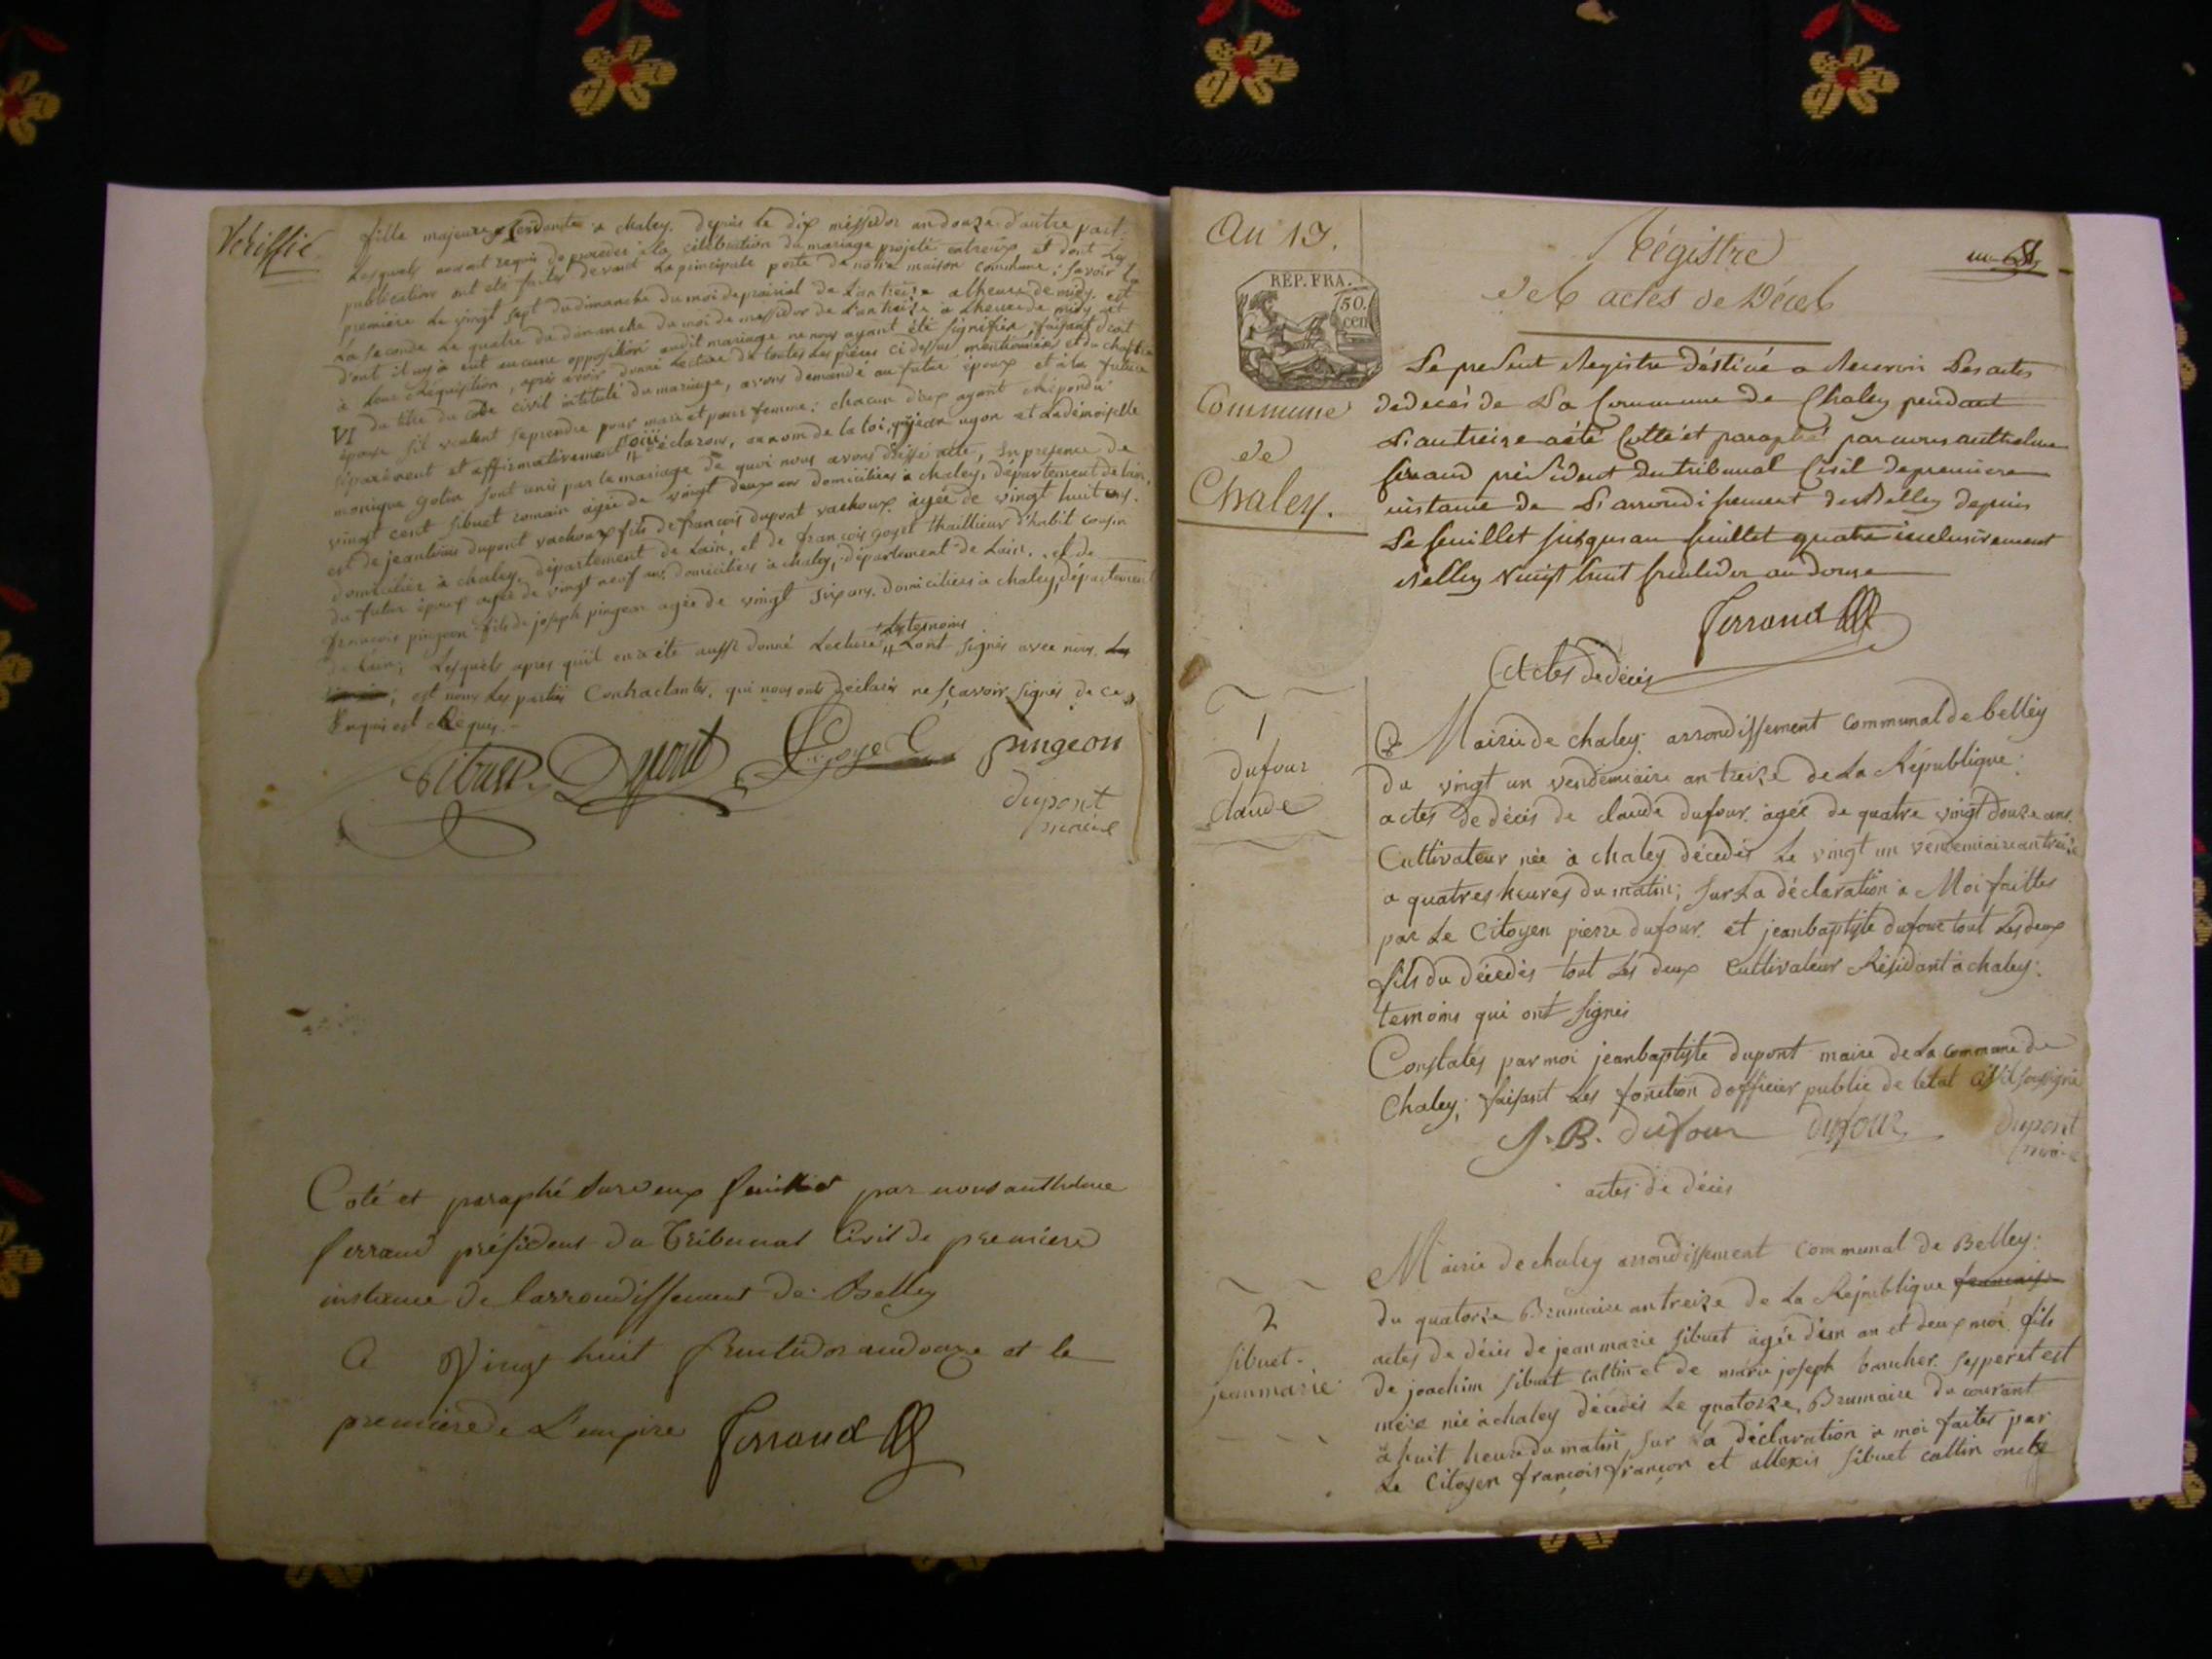 Vériffié
fille majeure Résidante a chaley. depuis le dix messidor an douze d'autre part.
Lesquels nous ont requis de procéder à la célébration du mariage projetté entreux et dont Les
publications ont été faites devant La principale porte de notre maison commune; savoir La
première Le vingt sept du dimanche du moi de prairial de L'an treize a lheure de midy. et
La seconde Le quatre du dimanche du moi de messidor de L'an treize a Lheure de midy et
dont il n'y a eut aucune opposition audit mariage ne nous ayant été signifiée, faisant droit
à Leur Réquisition, apres avoir donné Lecture de toutes Les pièces ci dessus mentionnées et du chapitre
VI du titre du code civil intitulé du mariage, avons demandé au futur époux et à la future
épouse s'il veulent se prendre pour mari et pour femme; chacun d'eux ayant Répondu
séparément et affirmativement déclarons, au nom de la loi, que jean ugon et Lademoiselle
monique golin sont unis par le mariage de quoi nous avons dressé acte, en presence de
vingt cent sibuet romain agée de vingt deux ans domiciliées à chaley, département de lain,
est de jean louis dupont vachoux fils de françois dupont vachoux. agée de vingt huit ans.
domiciliée à chaley, département de Lain, et de françois goyet thaillieur d'habit cousin
du futur époux agée de vingt neuf ans, domiciliées à chaley, département de Lain. et de
françois pingeon fils de joseph pingeon agée de vingt six ans. domiciliées à chaley, département
de Lain; Lesquels apres qu'il en a été aussi donné Lecture Les temoins Lont signés avec nous. Les
est nous Les parties Contractantes. qui nous onts déclarés ne sçavoir signés de ce
Enquis est Réquis.
Sibuet Dupont Goyet pingeon
dupont
maire
Coté et paraphé sur deux feuillet par nous anthelme
ferrand président du Tribunal Civil de premiere
instance de larrondissement de Belley
A Vingt huit fructidor an douze et le
premiere de L'empire ferrand
An 13.
REP. FRA.
50.
cen
Commune
de
Chaley.
Régistre
des actes de Décès
Le present Registre déstiné a Recevoir Les actes
de decès de La Commune de Chaley pendant
L'an treize a été Cotté et paraphé par nous anthelme
ferrand président du tribunal Civil de premiere
instance de L'arrondissement de Belley depuis
Le feuillet jusquau feuillet quatre inclusivement
Belley vingt huit fructidor an douze
ferrand
Actes de décès
1
dufour
claude
Mairie de chaley. arrondissement communal de belley
du vingt un vendemiaire an treize de La République.
actes de décès de claude dufour. agée de quatre vingt douze ans.
Cultivateur née à chaley décedés Le vingt un vendemiaire an treize
a quatres heures du matin; sur La déclaration a Moi faittes
par Le Citoyen pierre dufour. et jeanbaptiste dufour tout Les deux
fils du décedés tout Les deux Cultivateur Résidant à chaley.
temoins qui ont signés
Constatés par moi jeanbaptiste dupont maire de La commune de
Chaley; faisant Les fonction dofficier public de létat civil soussigné
J. B. dufour dufour dupont
maire
actes de décès
2
sibuet.
jean marie
Mairie de chaley arrondissement communal de Belley.
du quatorze Brumaire an treize de La République francaise
actes de décès de jean marie sibuet agée d'un an et deux moi. fils
de joachim sibuet cattin et de marie joseph baucher. ses peres est
mère née à chaley décédés Le quatorze Brumaire du courant
à huit heure du matin, sur La déclaration à moi faites par
Le Citoyen françois françon et allexis sibuet cattin oncle